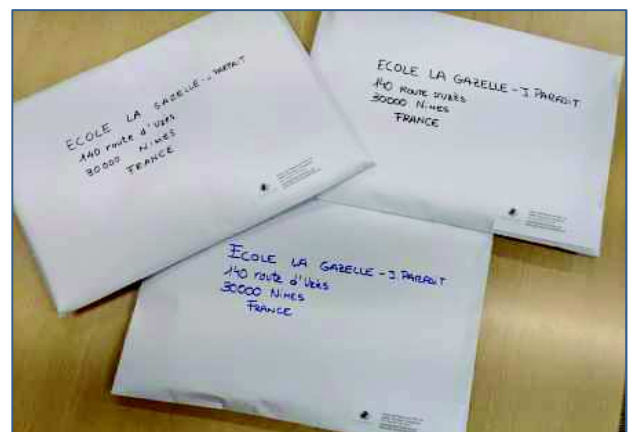 ECOLE LA GAZELLE - PARFAIT
140 route d'Uzès
30000 NIMES
FRANCE
ECOLE LA GAZELLE - J. PARFAIT
140 ROUTE D'UZÈS
30000 NIMES
FRANCE
ECOLE LA GAZELLE - J. PARFAIT
140 route d'Uzès
30000 NIMES
FRANCE